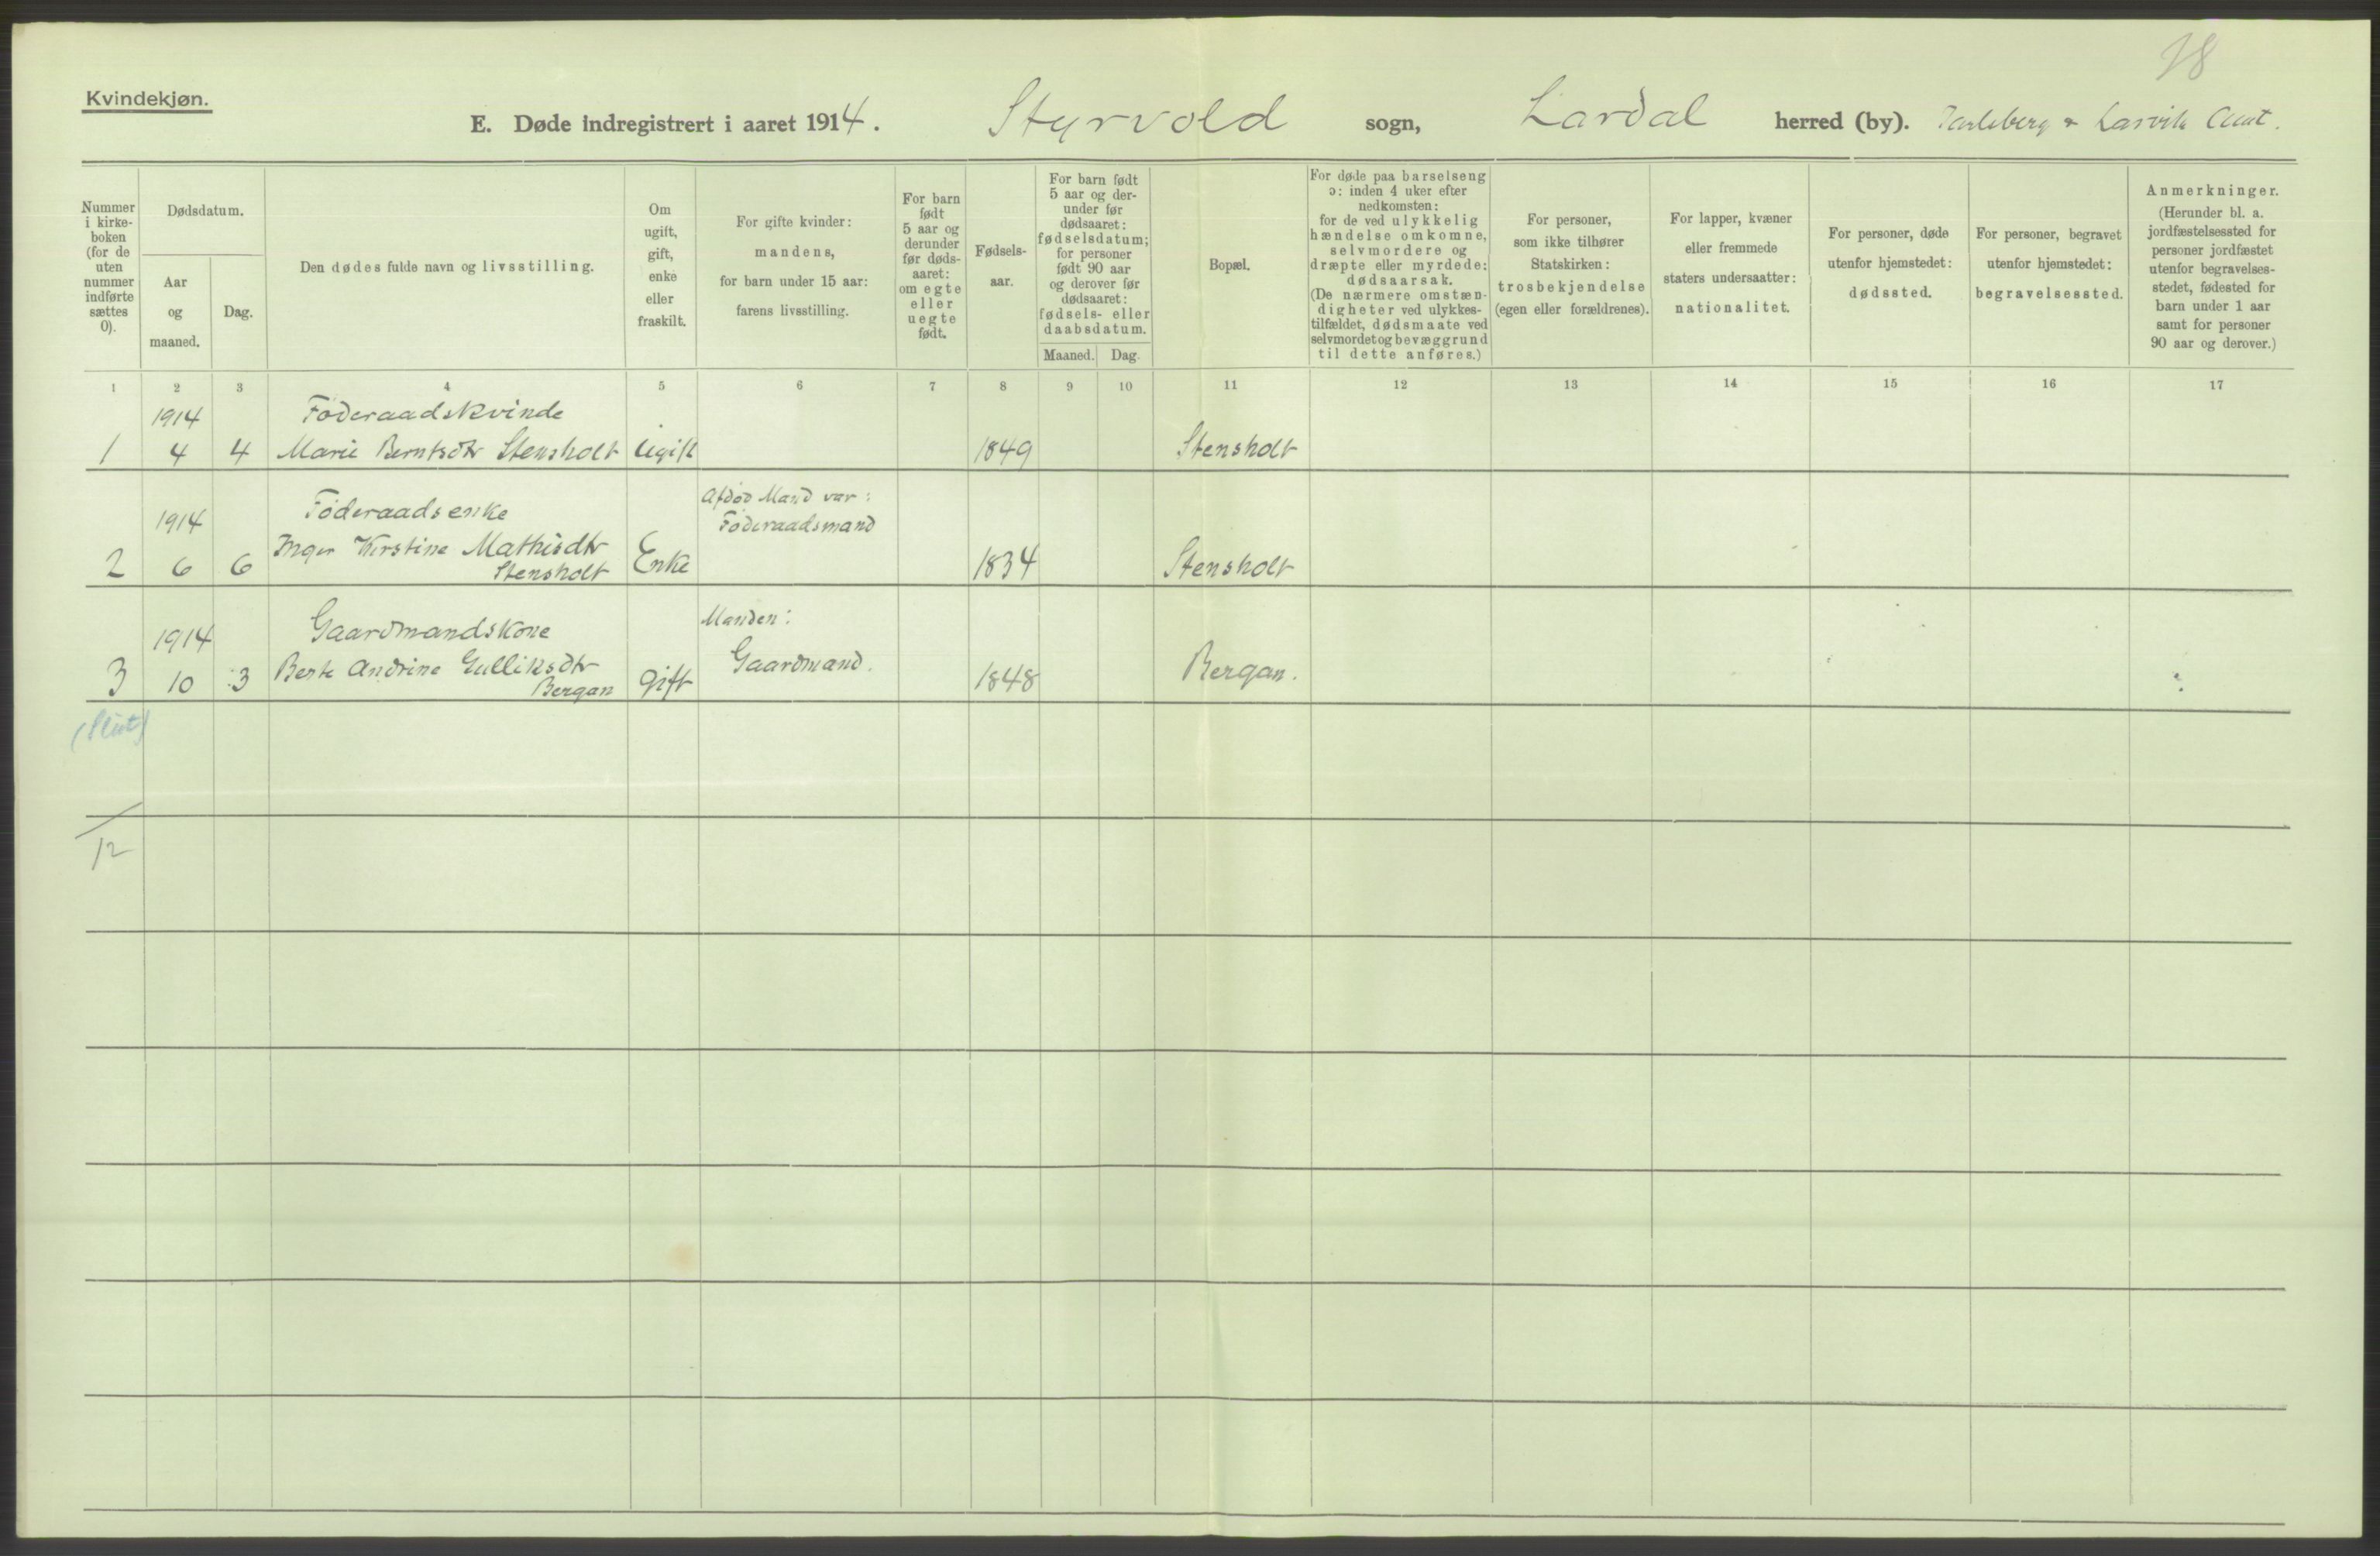 78
Kvindekjøn.
E. Døde indregistrert i aaret 1914. Styrvold sogn, Lardal herred (by). Jarlsberg & Larvik Amt.
Nummer
i kirke-
boken
(for de
uten
nummer
indførte
sættes
0).
Dødsdatum.
Aar
og
maaned.
Dag.
Den dødes fulde navn og livsstilling.
Om
ugift,
gift,
enke
eller
fraskilt.
For gifte kvinder:
mandens,
for barn under 15 aar:
farens livsstilling.
For barn
født
5 aar og
derunder
før døds-
aaret:
om egte
eller
uegte
født.
Fødsels-
aar.
For barn født
5 aar og der-
under før
dødsaaret:
fødselsdatum;
for personer
født 90 aar
og derover før
dødsaaret:
fødsels- eller
daabsdatum.
Maaned. Dag.
Bopæl.
For døde paa barselseng
ɔ: inden 4 uker efter
nedkomsten:
for de ved ulykkelig
hændelse omkomne,
selvmordere og
dræpte eller myrdede:
dødsaarsak.
(De nærmere omstæn-
digheter ved ulykkes-
tilfældet, dødsmaate ved
selvmordet og bevæggrund
til dette anføres.)
For personer,
som ikke tilhører
Statskirken:
trosbekjendelse
(egen eller forældrenes).
For lapper, kvæner
eller fremmede
staters undersaatter:
nationalitet.
For personer, døde
utenfor hjemstedet:
dødssted.
For personer, begravet
utenfor hjemstedet:
begravelsessted.
Anmerkninger.
(Herunder bl. a.
jordfæstelsessted for
personer jordfæstet
utenfor begravelses-
stedet, fødested for
barn under 1 aar
samt for personer
90 aar og derover.)
1 2 3 4 5 6 7 8 9 10 11 12 13 14 15 16 17
1914 Føderaadskvinde
1 4 4 Marie Berntsdtr Stensholt Ugift 1849 Stensholt
Afdød Mand var:
1914 Føderaadsenke Føderaadsmand
Inger Kirstine Mathisdtr
2 6 6 Stensholt Enke 1834 Stensholt
1914 Gaardmandskone Manden:
Berte Andrine Gulliksdtr Gaardmand.
3 10 3 Bergan gift 1848 Bergan.
(Slut)
12